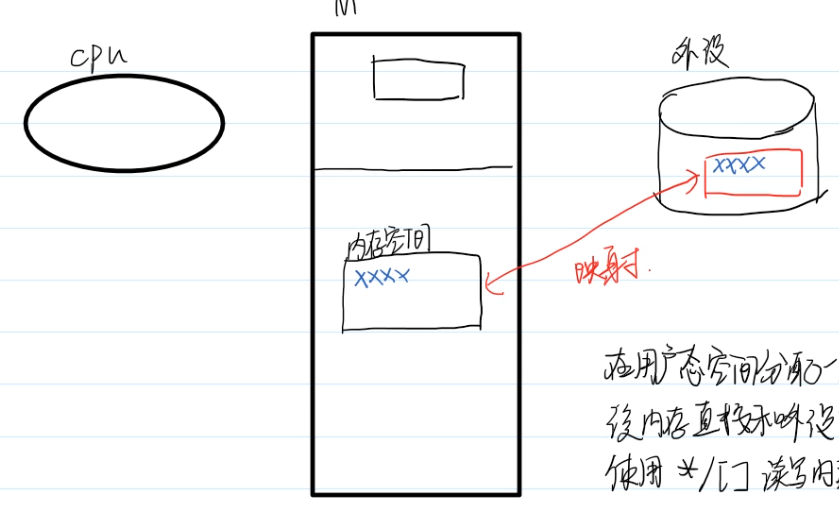 M
cpu
外设
xxxx
内存空间
xxxx
映射.
在用户态空间分配了一
段内存直接和外设
使用 */[] 读写内